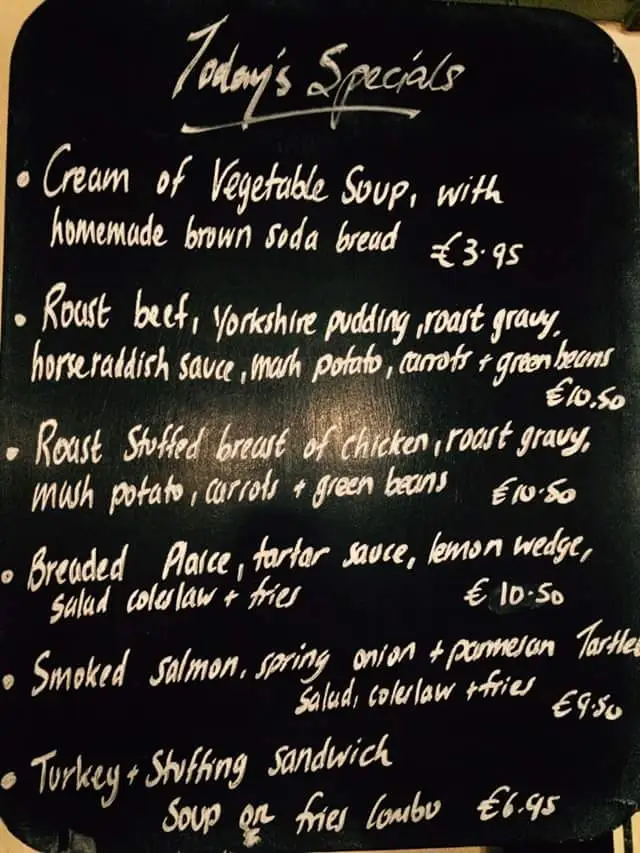 Today's Specials
• Cream of Vegetable Soup, with
homemade brown soda bread €3.95
• Roast beef, Yorkshire pudding, roast gravy,
horseraddish sauce, mash potato, carrots + green beans
€10.50
• Roast Stuffed breast of chicken, roast gravy,
mash potato, carrots + green beans €10.50
• Breaded Plaice, tartar sauce, lemon wedge,
salad coleslaw + fries € 10.50
• Smoked salmon, spring onion + parmesan Tartlet
salad, coleslaw + fries €9.50
• Turkey + Stuffing sandwich
Soup or fries Combo €6.95